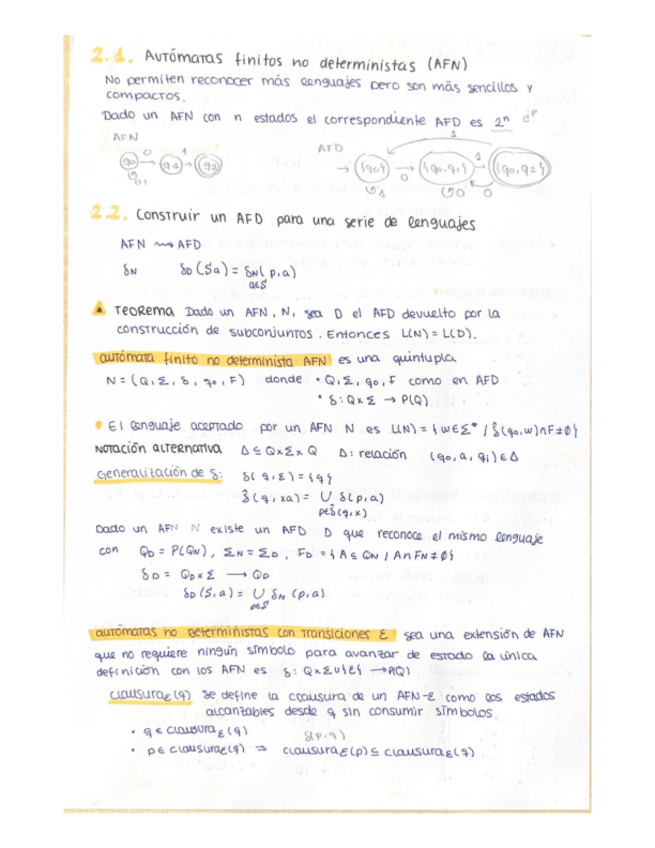 2.1. Autómatas finitos no deterministas (AFN)
No permiten reconocer más lenguajes pero son más sencillos y
compactos.
Dado un AFN con n estados el correspondiente AFD es 2ⁿ
AFN
q0 0 q1 1 q2
0,1
AFD
→ {q0} → {q0,q1} → {q0,q2}
1 0 0 1 0 1
2.2. Construir un AFD para una serie de lenguajes
AFN ⇝ AFD
δN δD(S,a) = δN(p,a)
TEOREMA Dado un AFN, N, sea D el AFD devuelto por la
construcción de subconjuntos. Entonces L(N) = L(D).
autómata finito no determinista AFN es una quintupla
N = (Q, Σ, δ, q0, F) donde • Q, Σ, q0, F como en AFD
• δ: Q×Σ → P(Q)
• El lenguaje aceptado por un AFN N es L(N) = {w∈Σ* / δ̂(q0,w)∩F≠∅}
NOTACIÓN ALTERNATIVA Δ ⊆ Q×Σ×Q Δ: relación (q0, a, qi) ∈ Δ
Generalización de δ: δ̂(q, ε) = {q}
δ̂(q, xa) = ∪ δ(p,a)
p∈δ̂(q,x)
Dado un AFN N existe un AFD D que reconoce el mismo lenguaje
con QD = P(QN), ΣN = ΣD, FD = {A ⊆ QN / A∩FN ≠ ∅}
δD = QD×Σ → QD
δD(S,a) = ∪ δN(p,a)
p∈S
autómatas no deterministas con transiciones ε sea una extensión de AFN
que no requiere ningún símbolo para avanzar de estado la única
definición con los AFN es δ: Q×Σ∪{ε} → P(Q)
clausuraε(q) se define la clausura de un AFN-ε como los estados
alcanzables desde q sin consumir símbolos.
• q ∈ clausuraε(q) δ(p,q)
• p ∈ clausuraε(q) ⇒ clausuraε(p) ⊆ clausuraε(q)